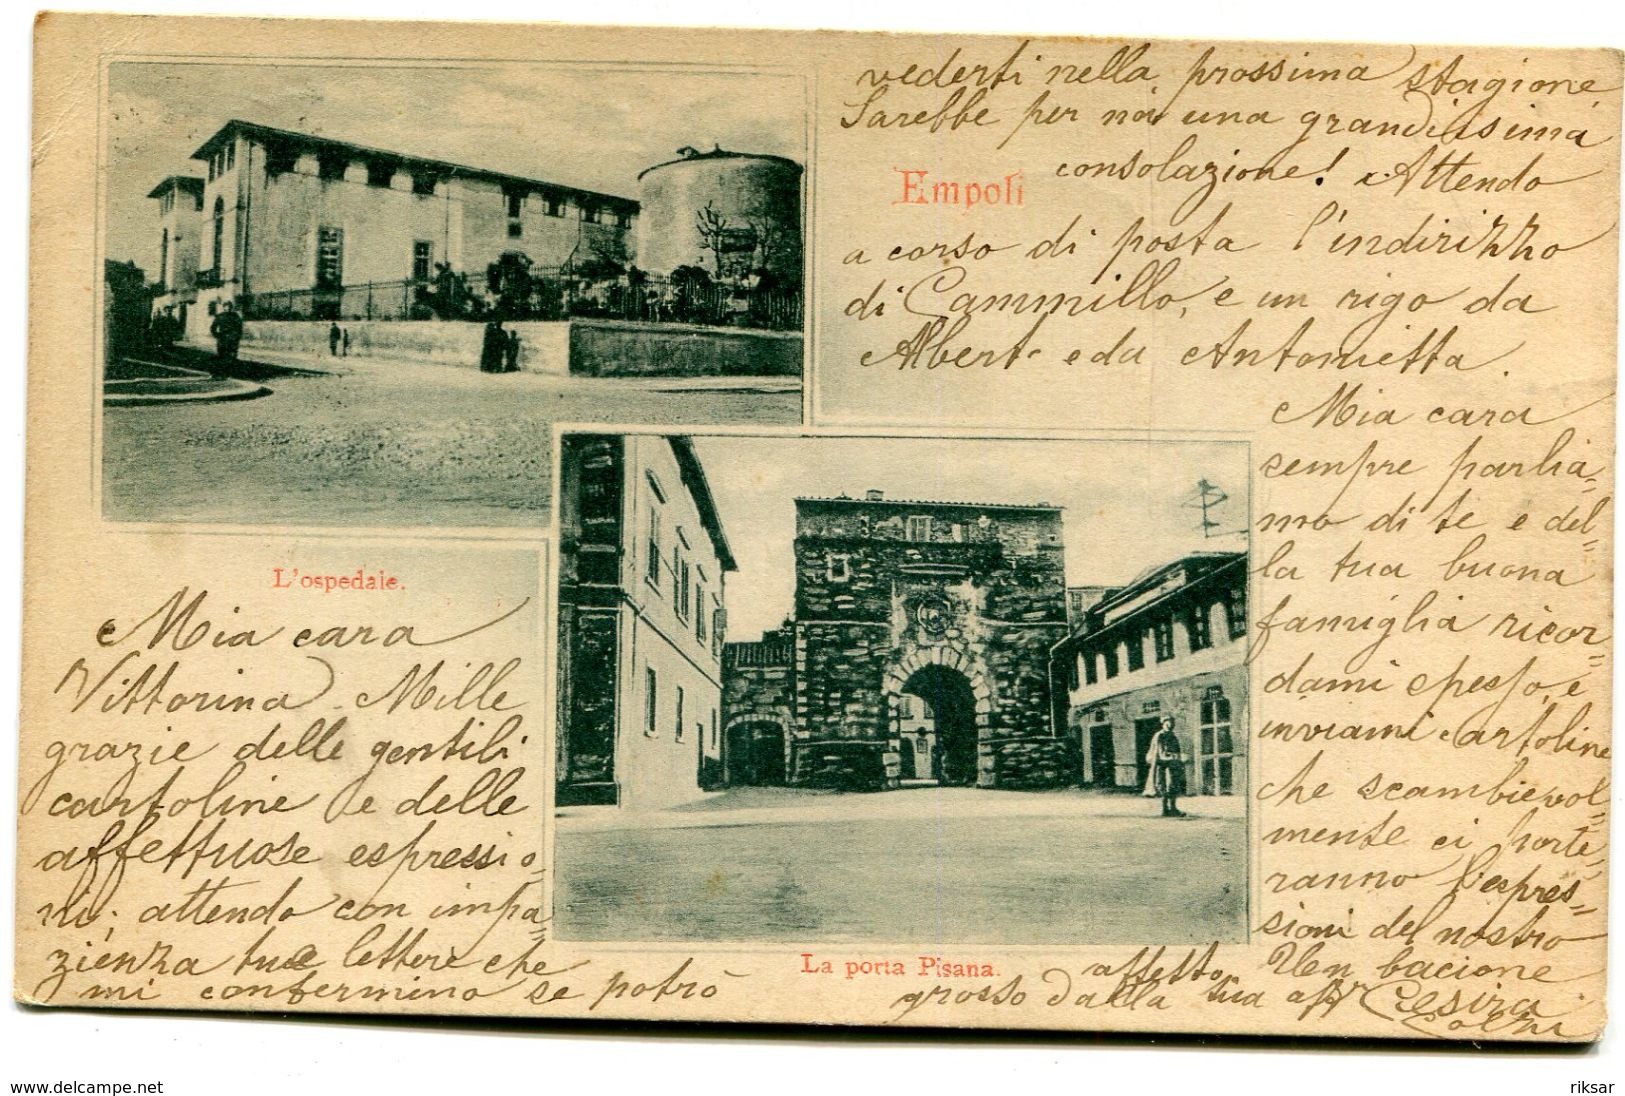 L'ospedale.
Mia cara
Vittorina. Mille
grazie delle gentili
cartoline e delle
affettuose espressio-
ni; attendo con impa=
zienza tue lettere che
mi confermino se potrò
vederti nella prossima stagione
Sarebbe per noi una grandissima
consolazione! Attendo
Empoli
a corso di posta l'indirizzo
di Cammillo, e un rigo da
Albert e da Antonietta.
Mia cara
sempre parlia=
mo di te e del=
la tua buona
famiglia ricor=
dami spesso, e
inviami cartoline
che scambievol=
mente ci porte=
ranno l'espres=
sioni del nostro
affetto. Un bacione
grosso dalla tua aff Cesira
La porta Pisana.
delcampe.net
riksar